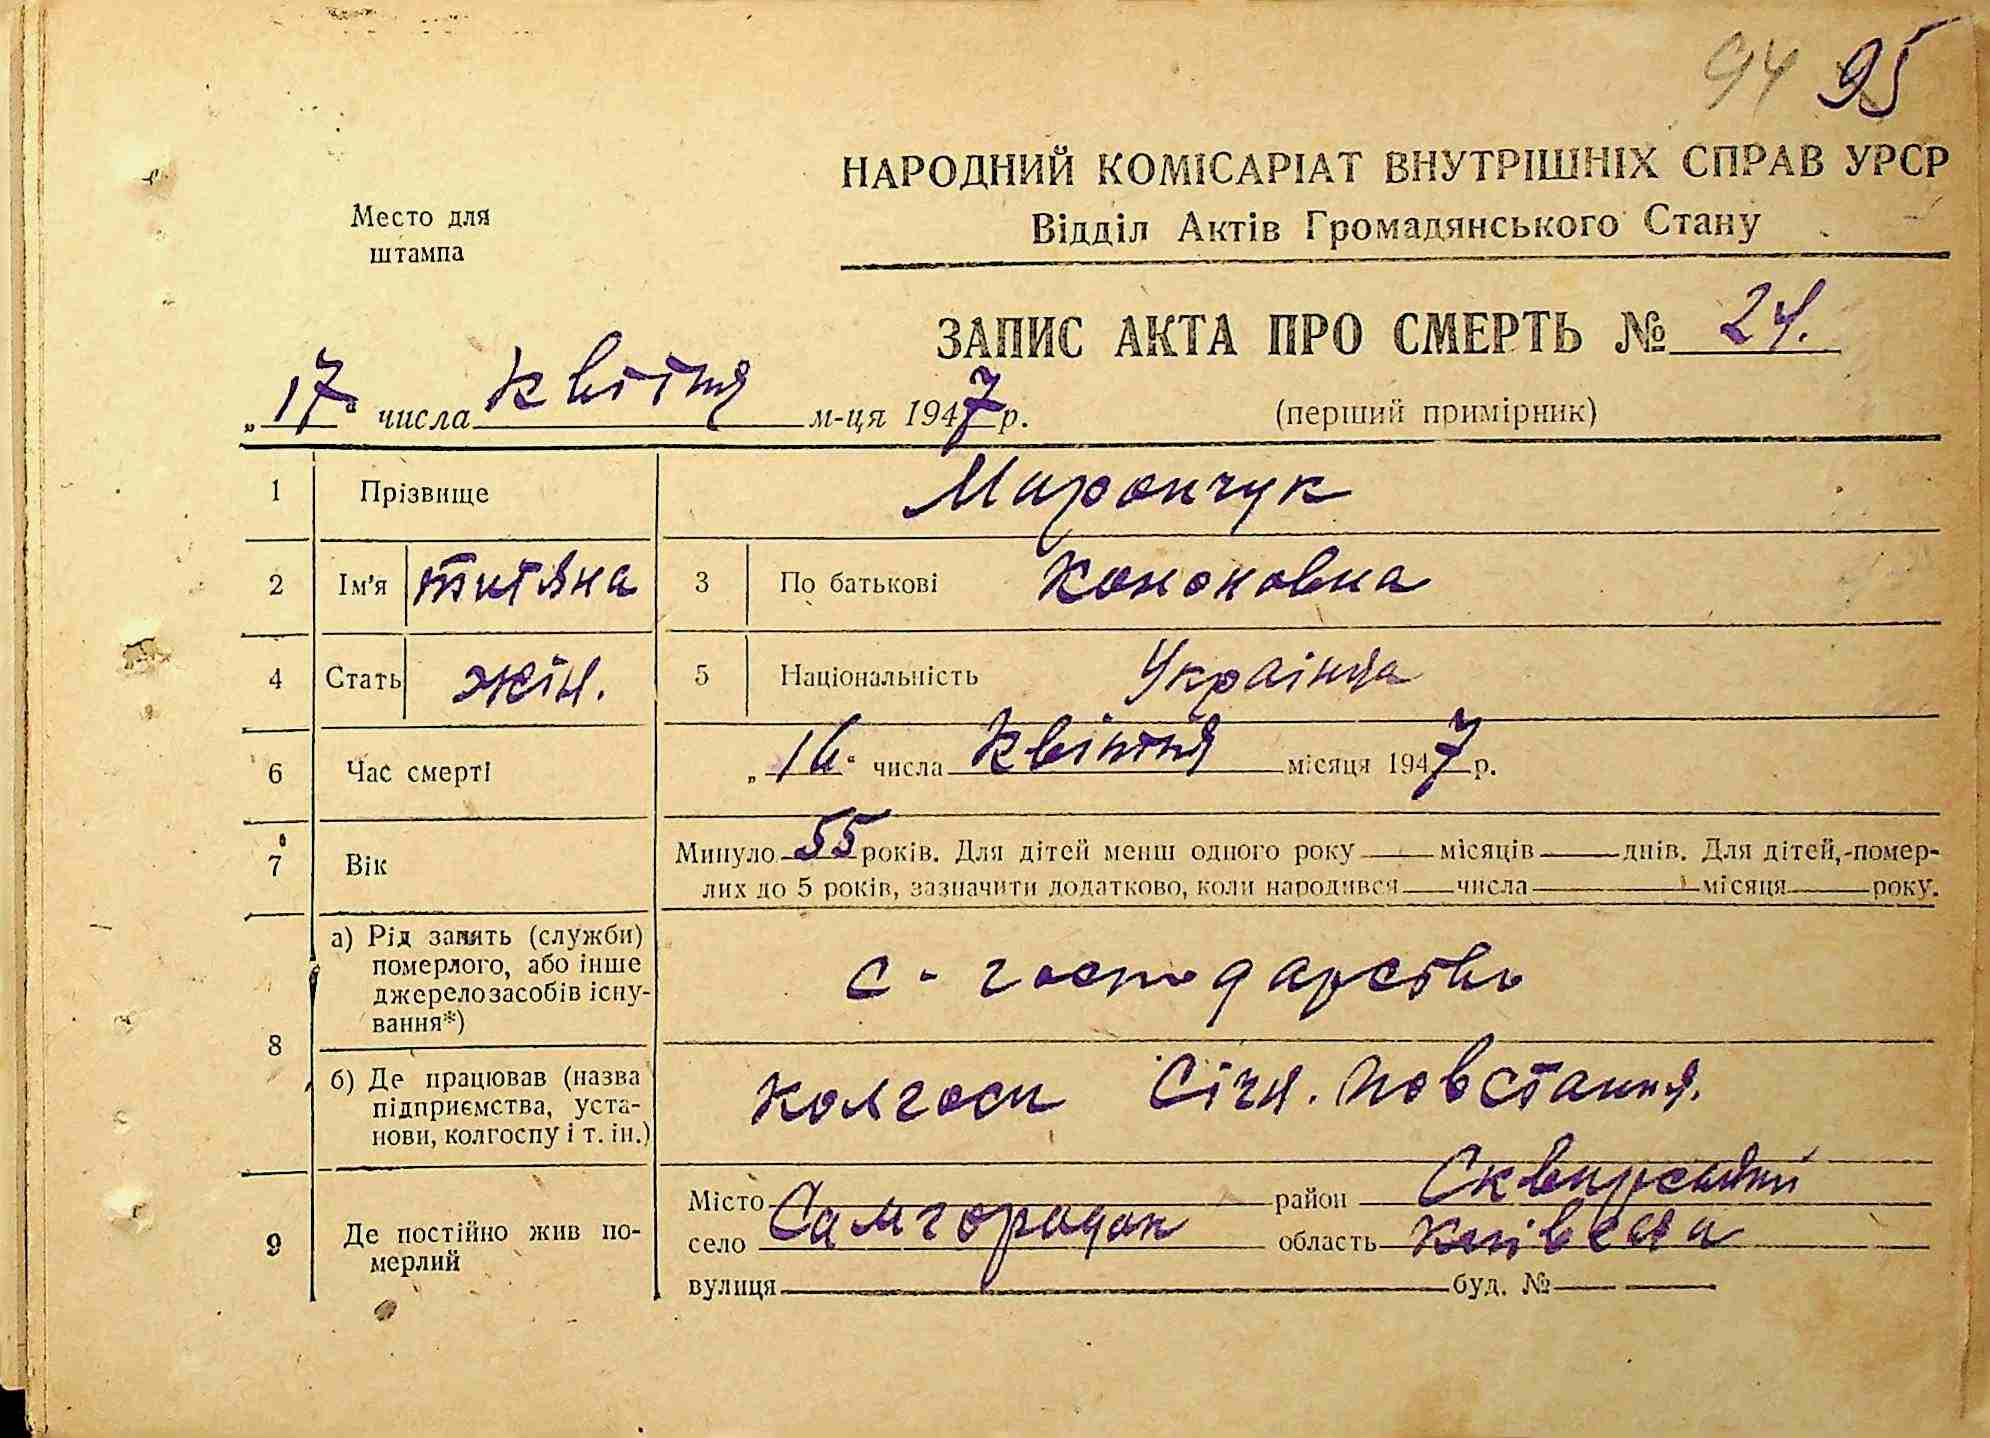 94 95
НАРОДНИЙ КОМІСАРІАТ ВНУТРІШНІХ СПРАВ УРСР
Место для штампа
Відділ Актів Громадянського Стану
ЗАПИС АКТА ПРО СМЕРТЬ № 24.
„17" числа квітня м-ця 1947 р.
(перший примірник)
1 Прізвище Мирончук
2 Ім'я Титяна 3 По батькові Кононовна
4 Стать жін. 5 Національність Українца
6 Час смерті „16" числа квітня місяця 1947 р.
7 Вік Минуло 55 років. Для дітей менш одного року місяців днів. Для дітей, помер-
лих до 5 років, зазначити додатково, коли народився числа місяця року.
8 а) Рід занять (служби)
померлого, або інше
джерело засобів існу-
вання*)
с-господарство
б) Де працював (назва
підприємства, уста-
нови, колгоспу і т. ін.)
колгосп Січн. Повстання.
9 Де постійно жив по-
мерлий
Місто район Сквирський
село Самгородок область Київська
вулиця буд. №